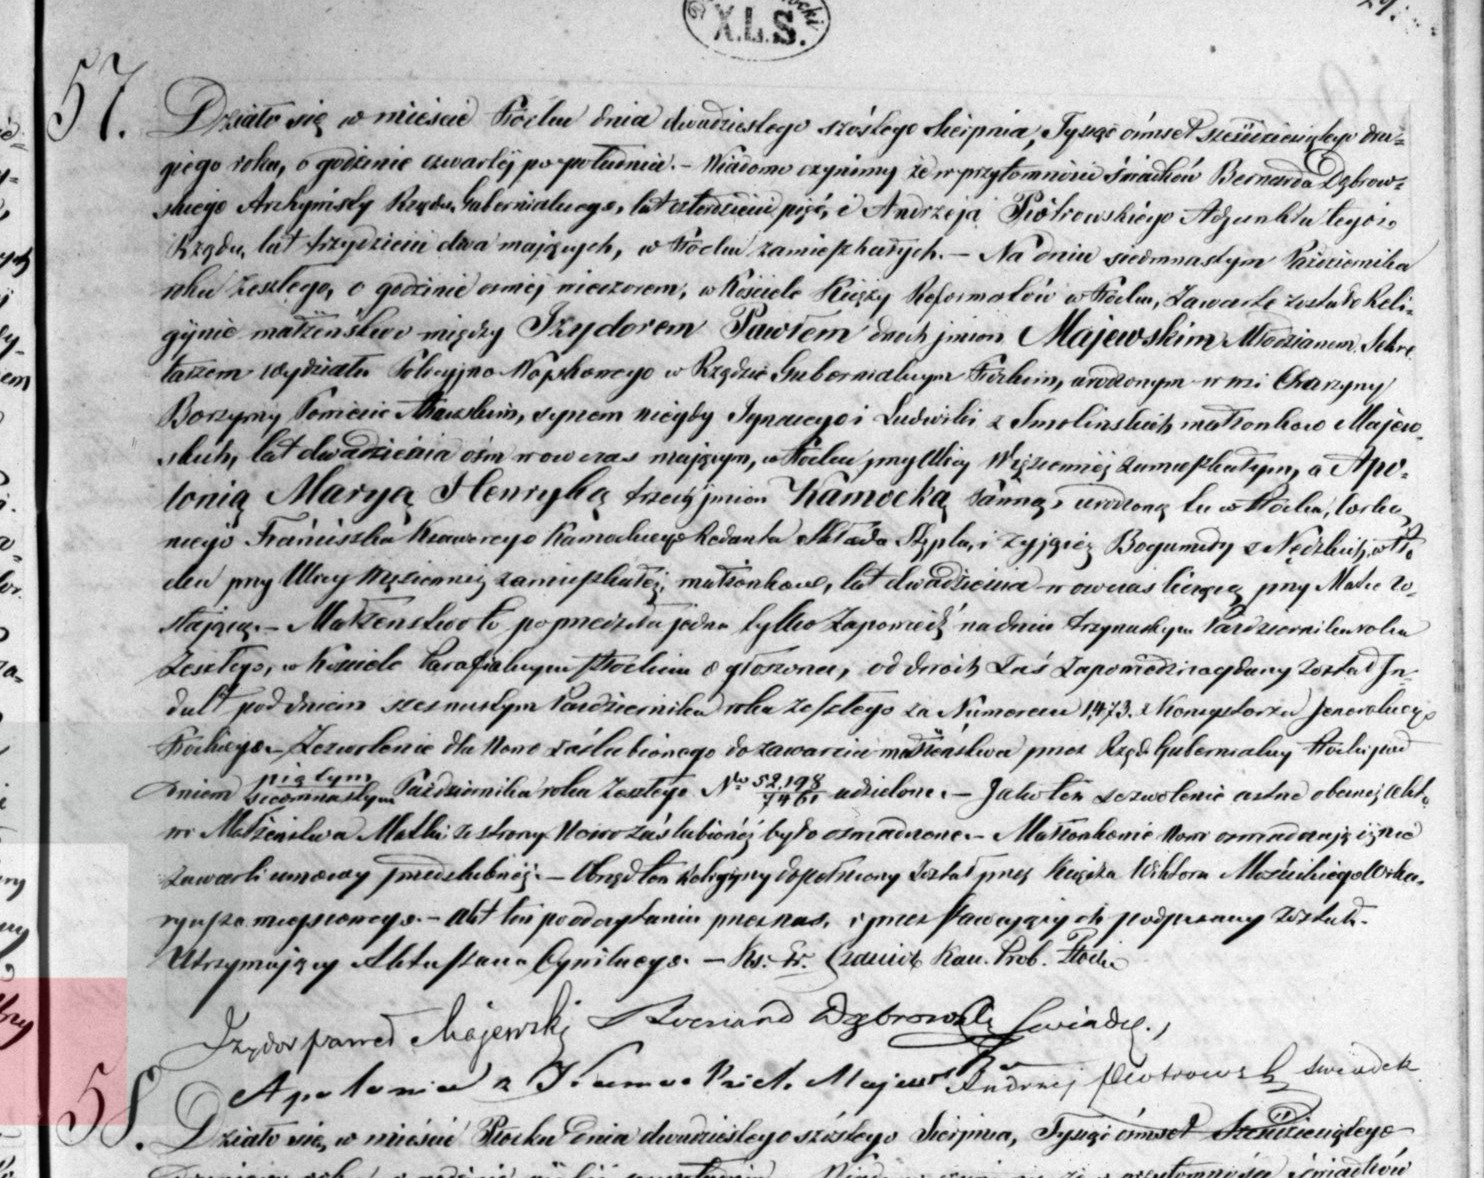 X.L.S.
57.
Działo się w mieście Płocku dnia dwudziestego szóstego Sierpnia, Tysiąc ośmset sześćdziesiątego dru-
giego roku, o godzinie czwartéj po południu. – Wiadomo czynimy że w przytomności świadków Bernarda Dąbrow-
skiego Archiwisty Rządu Gubernialnego, lat czterdzieści pięć, i Andrzeja Piotrowskiego Adjunkta tegoż
Rządu, lat trzydzieści dwa mających, w Płocku zamieszkałych. – Na dniu siedmnastym Października
roku zeszłego, o godzinie osméj wieczorem, w Kościele Księży Reformatów w Płocku, Zawarte zostało Reli-
gijnie małżeństwo między Izydorem Pawłem dwóch imion Majewskim Młodzianem, Sekre
tarzem wydziału Policyjno Wojskowego w Rządzie Gubernialnym Płockim, urodzonym w wsi
Borzymy Powiecie synem niegdy Ignacego i Ludwiki z Smolińskich małżonków Majew-
skich, lat dwadzieścia ośm wówczas mającym, w Płocku przy Ulicy Więziennéj zamieszkałym, a Apo-
lonią Maryą Henryką trzech imion Kamocką Panną, urodzoną tu w Płocku, córką
niegdy Franciszka Xawerego Kamockiego Składu Stępla, i żyjącéj Bogumiły z w Pło
cku przy Ulicy Więziennéj zamieszkałéj, małżonków, lat dwadzieścia wówczas liczącą przy Matce zo-
stającą. – Małżeństwo to poprzedziła jedna tylko Zapowiedź na dniu trzynastym Października roku
Zeszłego, w Kościele Parafialnym Płockim ogłoszona, od dwóch zaś Zapowiedzi wydany został In-
dult pod dniem szesnastym Października roku zeszłego za Numerem 1,473. z Konsystorza Jeneralnego
Płockiego. – Zezwolenie dla Nowo zaślubionego do zawarcia małżeństwa przez Rząd Gubernialny Płocki pod
dniem piątym siedmnastym Października roku Zeszłego No 52,198/7461 udzielone. – Jako téż zezwolenie ustne obecnéj Akto
wi Małżeństwa Matki ze strony Nowo zaślubionéj było oświadczone. – Małżonkowie Nowi oświadczają iż nie
zawarli umowy przedślubnéj. – Obrzęd ten Religijny dopełniony został przez Księdza Wiktora Mościckiego Wika-
ryusza miejscowego. – Akt ten po odczytaniu przez nas, i przez stawających podpisany został.
Utrzymujący Akta Stanu Cywilnego. – Ks. Fr. Kan. Prob. Płocki
Izydor Paweł Majewski Bernard Dąbrowski Świadek.
Apolonia z Kamockich Majewska Andrzej Piotrowski świadek
58.
Działo się, w mieście Płocku Dnia dwudziestego szóstego Sierpnia, Tysiąc ośmset Sześćdziesiątego